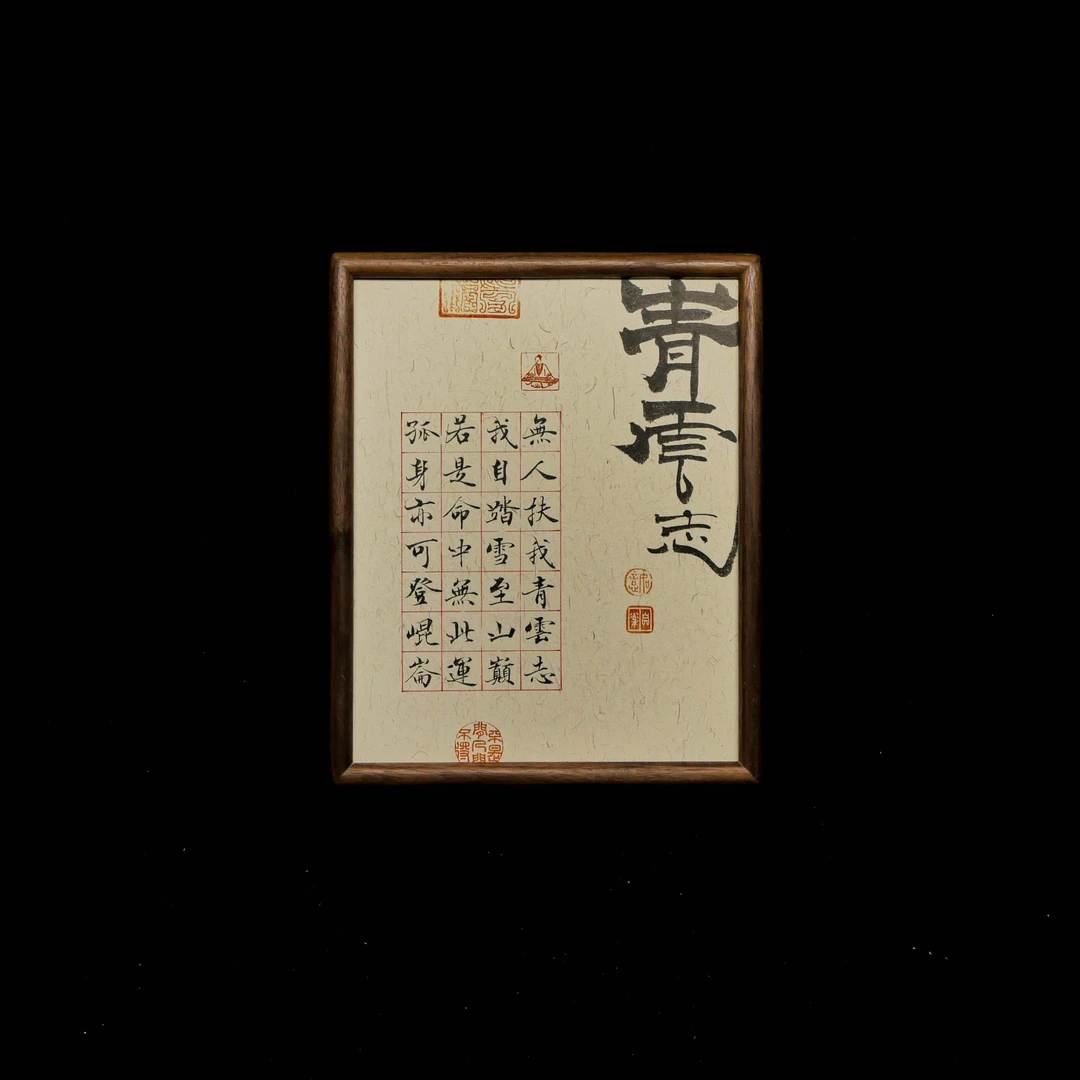 青雲志
無人扶我青雲志
我自踏雪至山巔
若是命中無此運
孤身亦可登崐崙